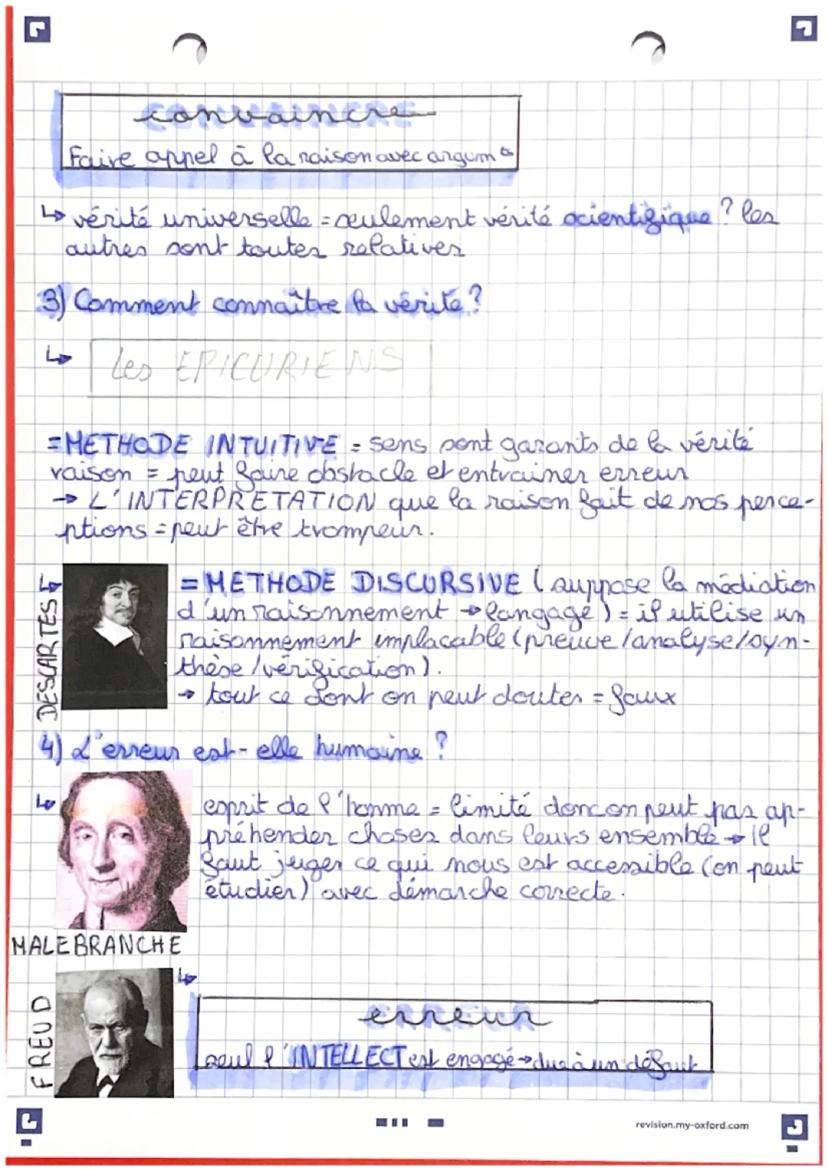 convaincre
Faire appel à la raison avec argumts
↳ vérité universelle = seulement vérité scientifique ? les
autres sont toutes relatives
3) Comment connaître la vérité ?
↳ Les EPICURIENS
= METHODE INTUITIVE = sens sont garants de la vérité
raison = peut faire obstacle et entrainer erreur
→ L'INTERPRETATION que la raison fait de nos perce-
ptions = peut être trompeur.
DESCARTES ↳
= METHODE DISCURSIVE (suppose la médiation
d'un raisonnement → langage) = il utilise un
raisonnement implacable (preuve/analyse/syn-
thèse/vérification).
→ tout ce dont on peut douter = faux
4) L'erreur est-elle humaine ?
↳ esprit de l'homme = limité donc on peut pas ap-
préhender choses dans leurs ensemble → il
faut juger ce qui nous est accessible (on peut
étudier) avec démarche correcte.
MALEBRANCHE
FREUD ↳
erreur
seul l'INTELLECT est engagé → due à un défaut
revision.my-oxford.com